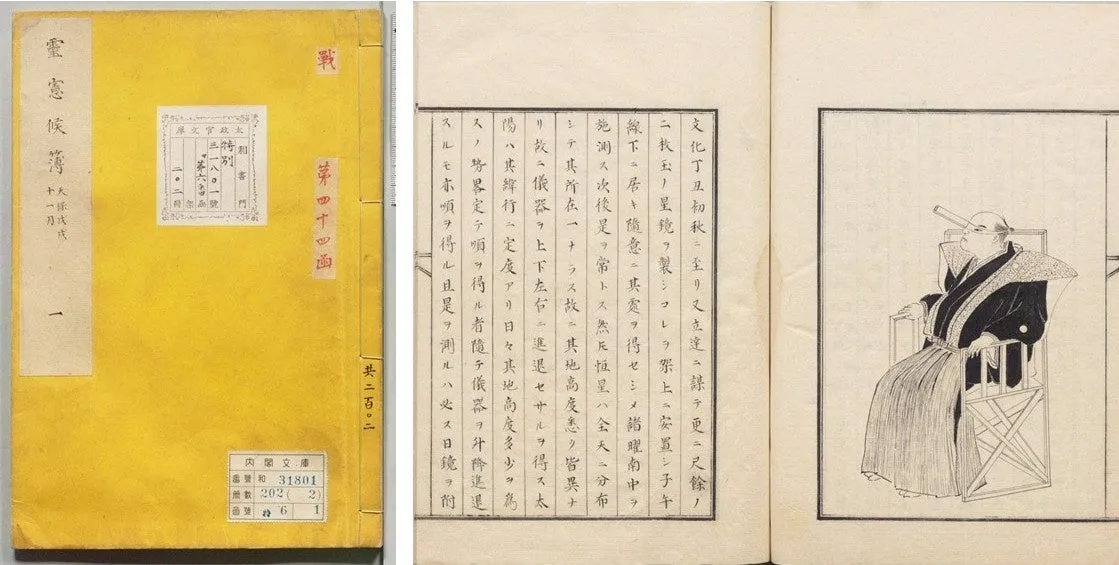 靈憲候簿
天保戊戌
十一月
一
戰
第四十四函
太政官文庫
和書門
特別
三一八〇一號
二〇二冊
共二百〇二
内閣文庫
番號 和 31801
冊數 202 ( 2 )
函號 特 6 1
文化丁丑初秋ニ至リ又立達ニ謀テ更ニ尺餘ノ
二枚玉ノ星鏡ヲ製シコレヲ架上ニ安置シ子午
線下ニ居キ隨意ニ其處ヲ得セシメ諸曜南中ヲ
施測ス次後是ヲ常トス然𪜈恒星ハ全天ニ分布
シテ其所在一ナラス故ニ其地高度悉ク皆異ナ
リ故ニ儀器ヲ上下左右ニ進退セサルヲ得ス太
陽ハ其緯行ニ定度アリ日々其地高度多少ヲ為
スノ勢畧定テ順ヲ得ル者隨テ儀器ヲ升降進退
スルモ亦順ヲ得ル且是ヲ測ルハ必ス日鏡ヲ附